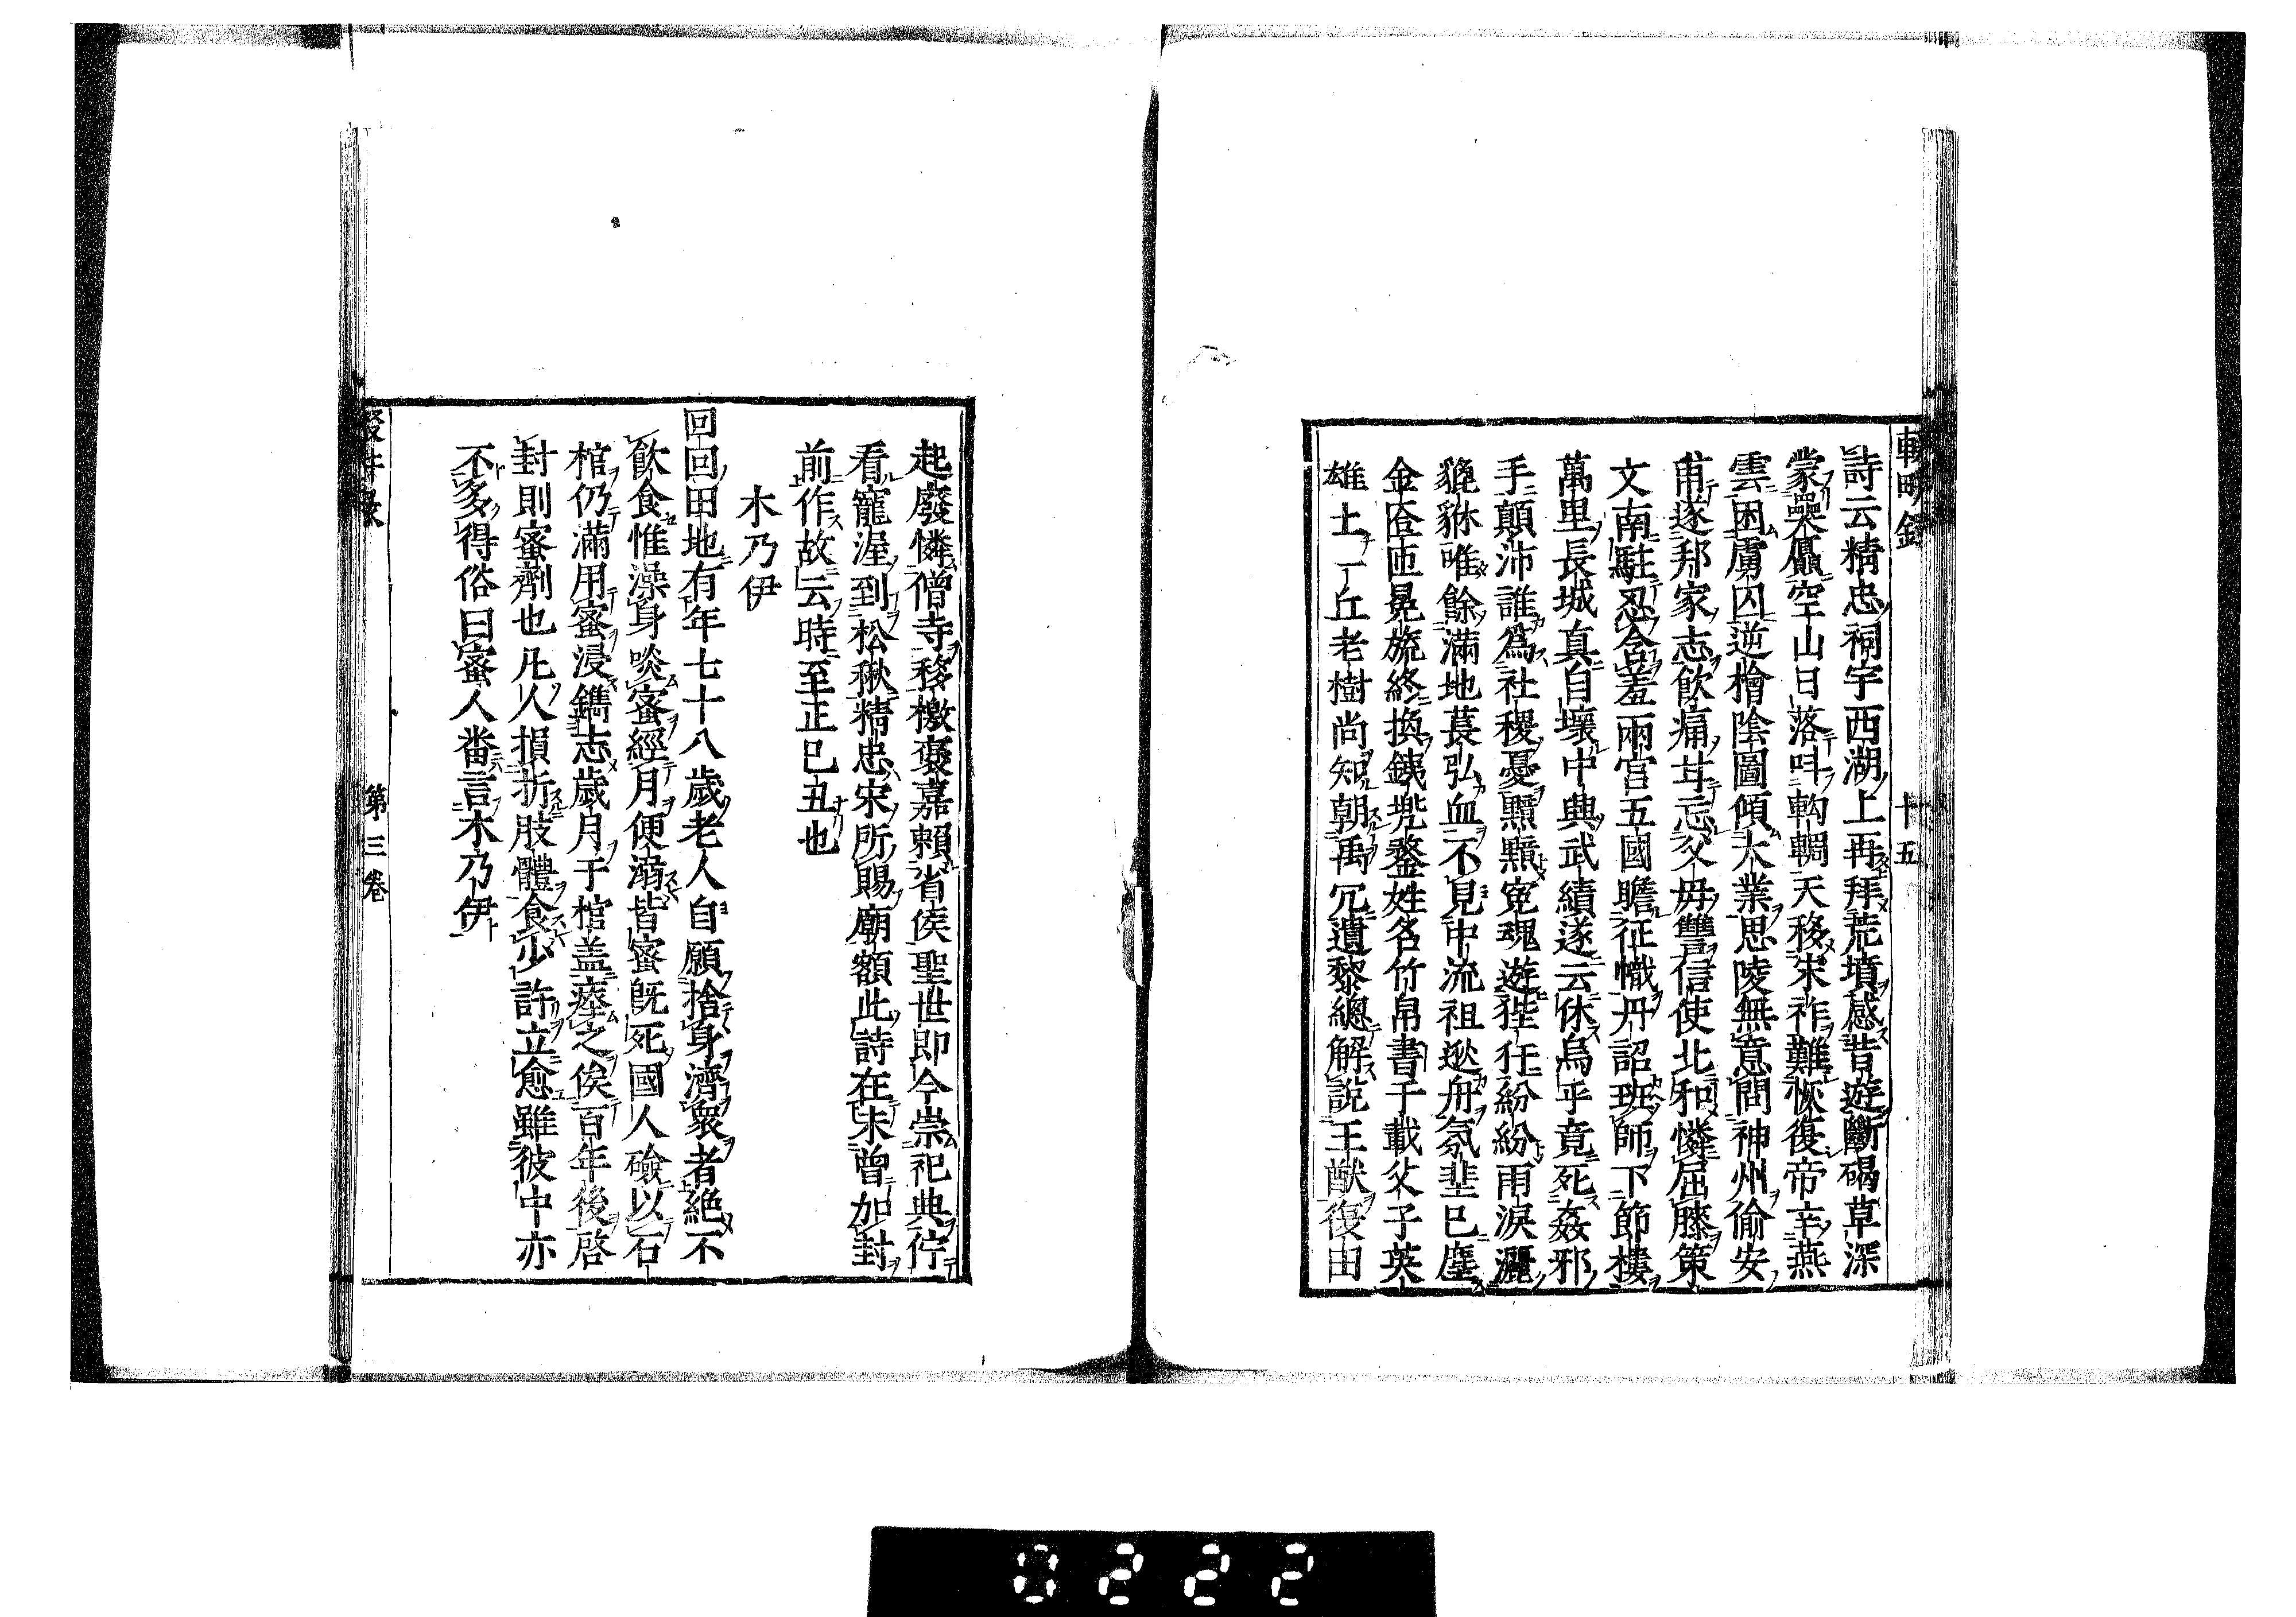 輟畊錄 十五
詩云精忠祠宇西湖上再拜荒墳感昔遊斷碣草深
蒙贔屭空山日落呌鞫輖天移宋祚難恢復帝幸燕
雲困虜囚逆檜陰圖傾大業思陵無意問神州偷安
甫遂邦家志飲痛甘忘父母讐信使北和憐屈膝策
文南駐忍含羞兩宮五國瞻征幟丹詔班師下節樓
萬里長城真自壞中興武績遂云休烏乎竟死姦邪
手顛沛誰爲社稷憂黯黯寃魂遊狴犴紛紛雨淚灑
貔貅唯餘滿地萇弘血不見中流祖逖舟氛翳已塵
金匼匝冕旒終換鐵兜鍪姓名竹帛書千載父子英
雄土一丘老樹尚知朝禹穴遺黎總解說王猷復由
起廢憐僧寺移檄褒嘉賴省侯聖世即今崇祀典佇
看寵渥到松楸精忠宋所賜廟額此詩在未曾加封
前作故云時至正已丑也
木乃伊
回回田地有年七十八歲老人自願捨身濟衆者絶不
飲食惟澡身啖蜜經月便溺皆蜜旣死國人殮以石
棺仍滿用蜜浸鐫志歲月于棺盖瘞之俟百年後啓
封則蜜劑也凡人損折肢體食少許立愈雖彼中亦
不多得俗曰蜜人番言木乃伊
第三卷
0222